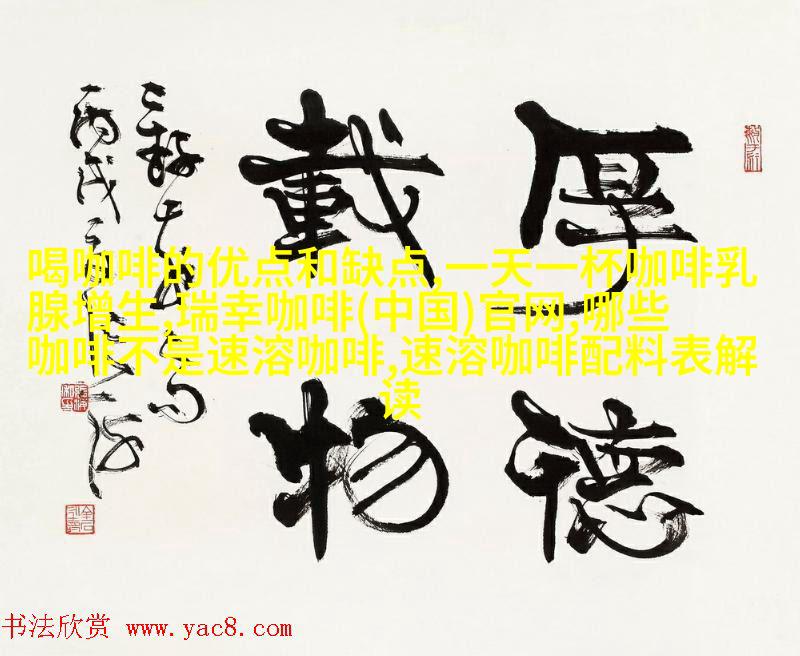 厚德
載物
喝咖啡的优点和缺点,一天一杯咖啡乳
腺增生,瑞幸咖啡(中国)官网,哪些
咖啡不是速溶咖啡,速溶咖啡配料表解
读
书法欣赏 www.yac8.com